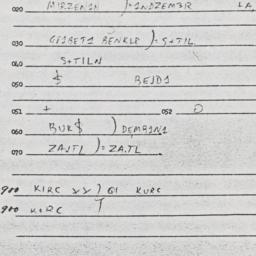 020 MIRZEN1N )=1NDZEM3R LA,
030 GE1BET1 BENKLE )=S+TIL
040 S+TILN
050 £ BEJD1
051 + 052 O
060 BUR$ ) DEMB1N1
070 ZAJTL )=ZA.TL
900 KIRC >> ) G1 KURC
900 K1RC T